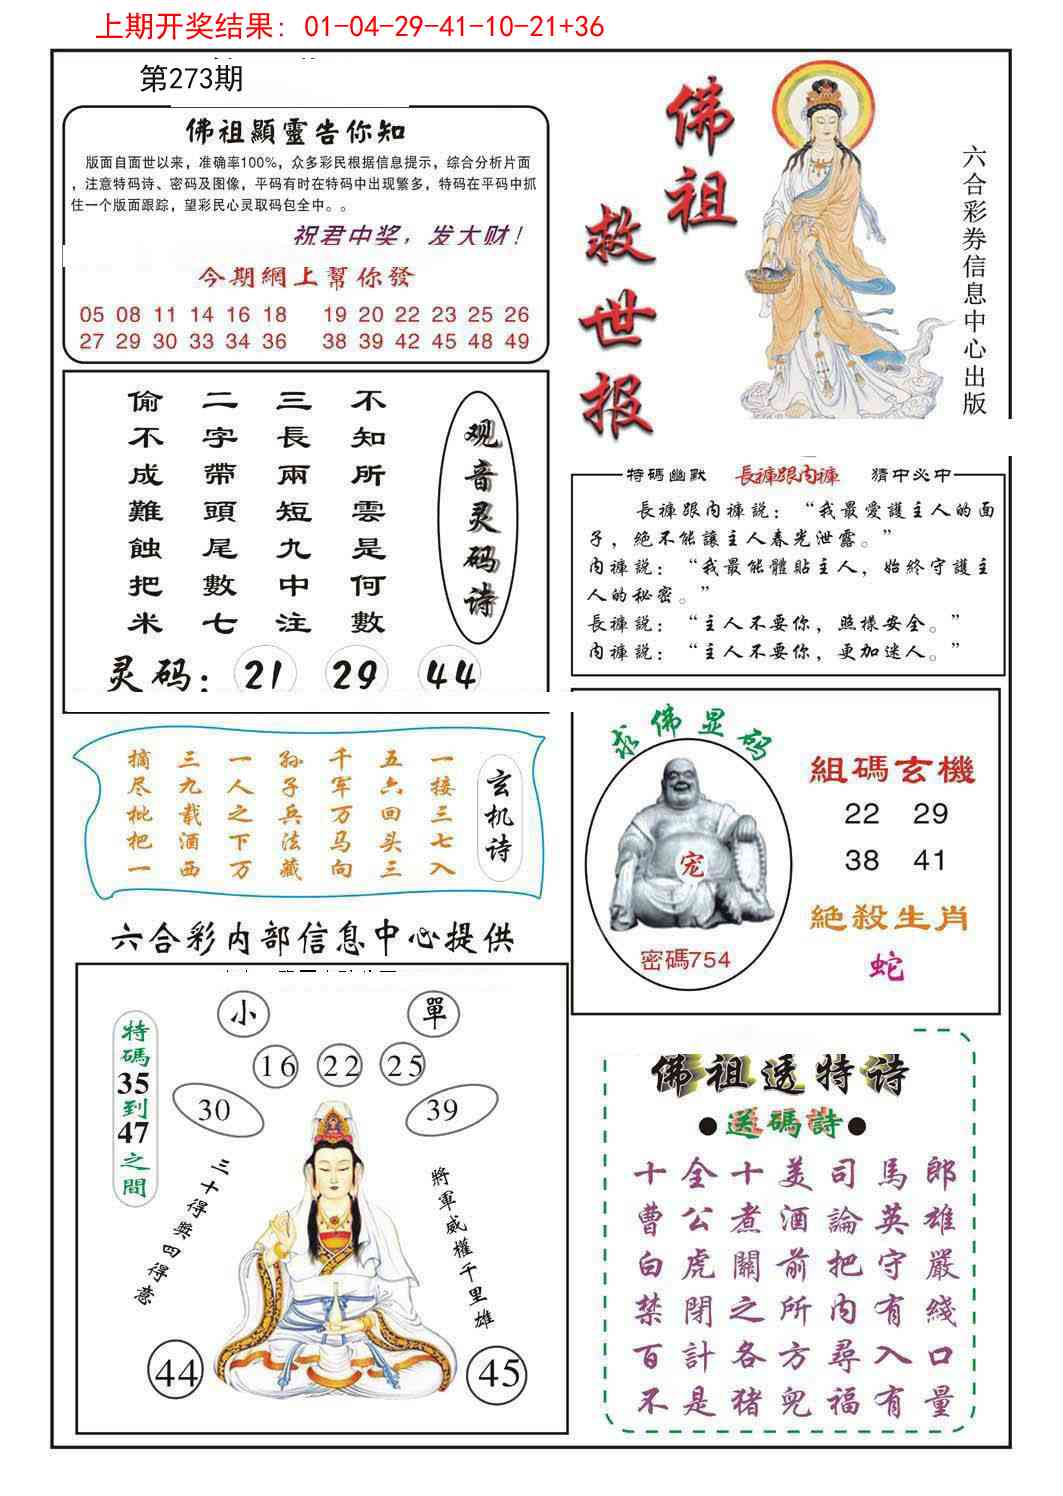 上期开奖结果: 01-04-29-41-10-21+36
第273期
佛祖顯靈告你知
版面自面世以来，准确率100%，众多彩民根据信息提示，综合分析片面
，注意特码诗、密码及图像，平码有时在特码中出现繁多，特码在平码中抓
住一个版面跟踪，望彩民心灵取码包全中。。
祝君中奖，发大财!
今期網上幫你發
05 08 11 14 16 18 19 20 22 23 25 26
27 29 30 33 34 36 38 39 42 45 48 49
佛祖
救世报
六合彩券信息中心出版
观音灵码诗
不知所雲是何數
三長兩短九中注
二字帶頭尾數七
偷不成難蝕把米
灵码: 21 29 44
特碼幽默 長褲跟内褲 猜中必中
長褲跟内褲説：“我最愛護主人的面
子，絶不能讓主人春光泄露。”
内褲説：“我最能體貼主人，始終守護主
人的秘密。”
長褲説：“主人不要你，照樣安全。”
内褲説：“主人不要你，更加迷人。”
玄机诗
一接三七入
五六回头三
千军万马向
孙子兵法藏
一人之下万
三九载酒西
摘尽枇把一
求佛显码
宠
密碼754
組碼玄機
22 29
38 41
絕殺生肖
蛇
六合彩内部信息中心提供
小 單
16 22 25
30 39
特碼35到47之間
三十得獎四得意
將軍威權千里雄
44 45
佛祖透特诗
●送碼詩●
十全十美司馬郎
曹公煮酒論英雄
白虎關前把守嚴
禁閉之所内有綫
百計各方尋入口
不是猪兜福有量